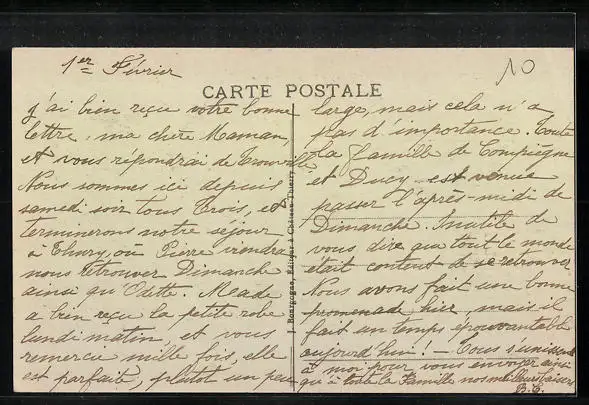 1er Février
10
CARTE POSTALE
j'ai bien reçu votre bonne
lettre, ma chère Maman,
et vous répondrai de Trouville
Nous sommes ici depuis
samedi soir tous trois, et
terminerons notre séjour
à Thury, où Pierre viendra
nous retrouver Dimanche
ainsi qu'Odette. Meade
a bien reçu la petite robe
lundi matin, et vous
remercie mille fois, elle
est parfaite, plutôt un peu
J. Bourgogne, Editeur à Château-Thierry
large, mais cela n'a
pas d'importance. Toute
la famille de Compiègne
et Ducy est venue
passer l'après-midi de
Dimanche. Inutile de
vous dire que tout le monde
était content de se retrouver
Nous avons fait une bonne
promenade hier, mais il
fait un temps épouvantable
aujourd'hui! — Tous s'unissent
à moi pour vous envoyer ainsi
qu'à toute la Famille nos meilleurs baisers